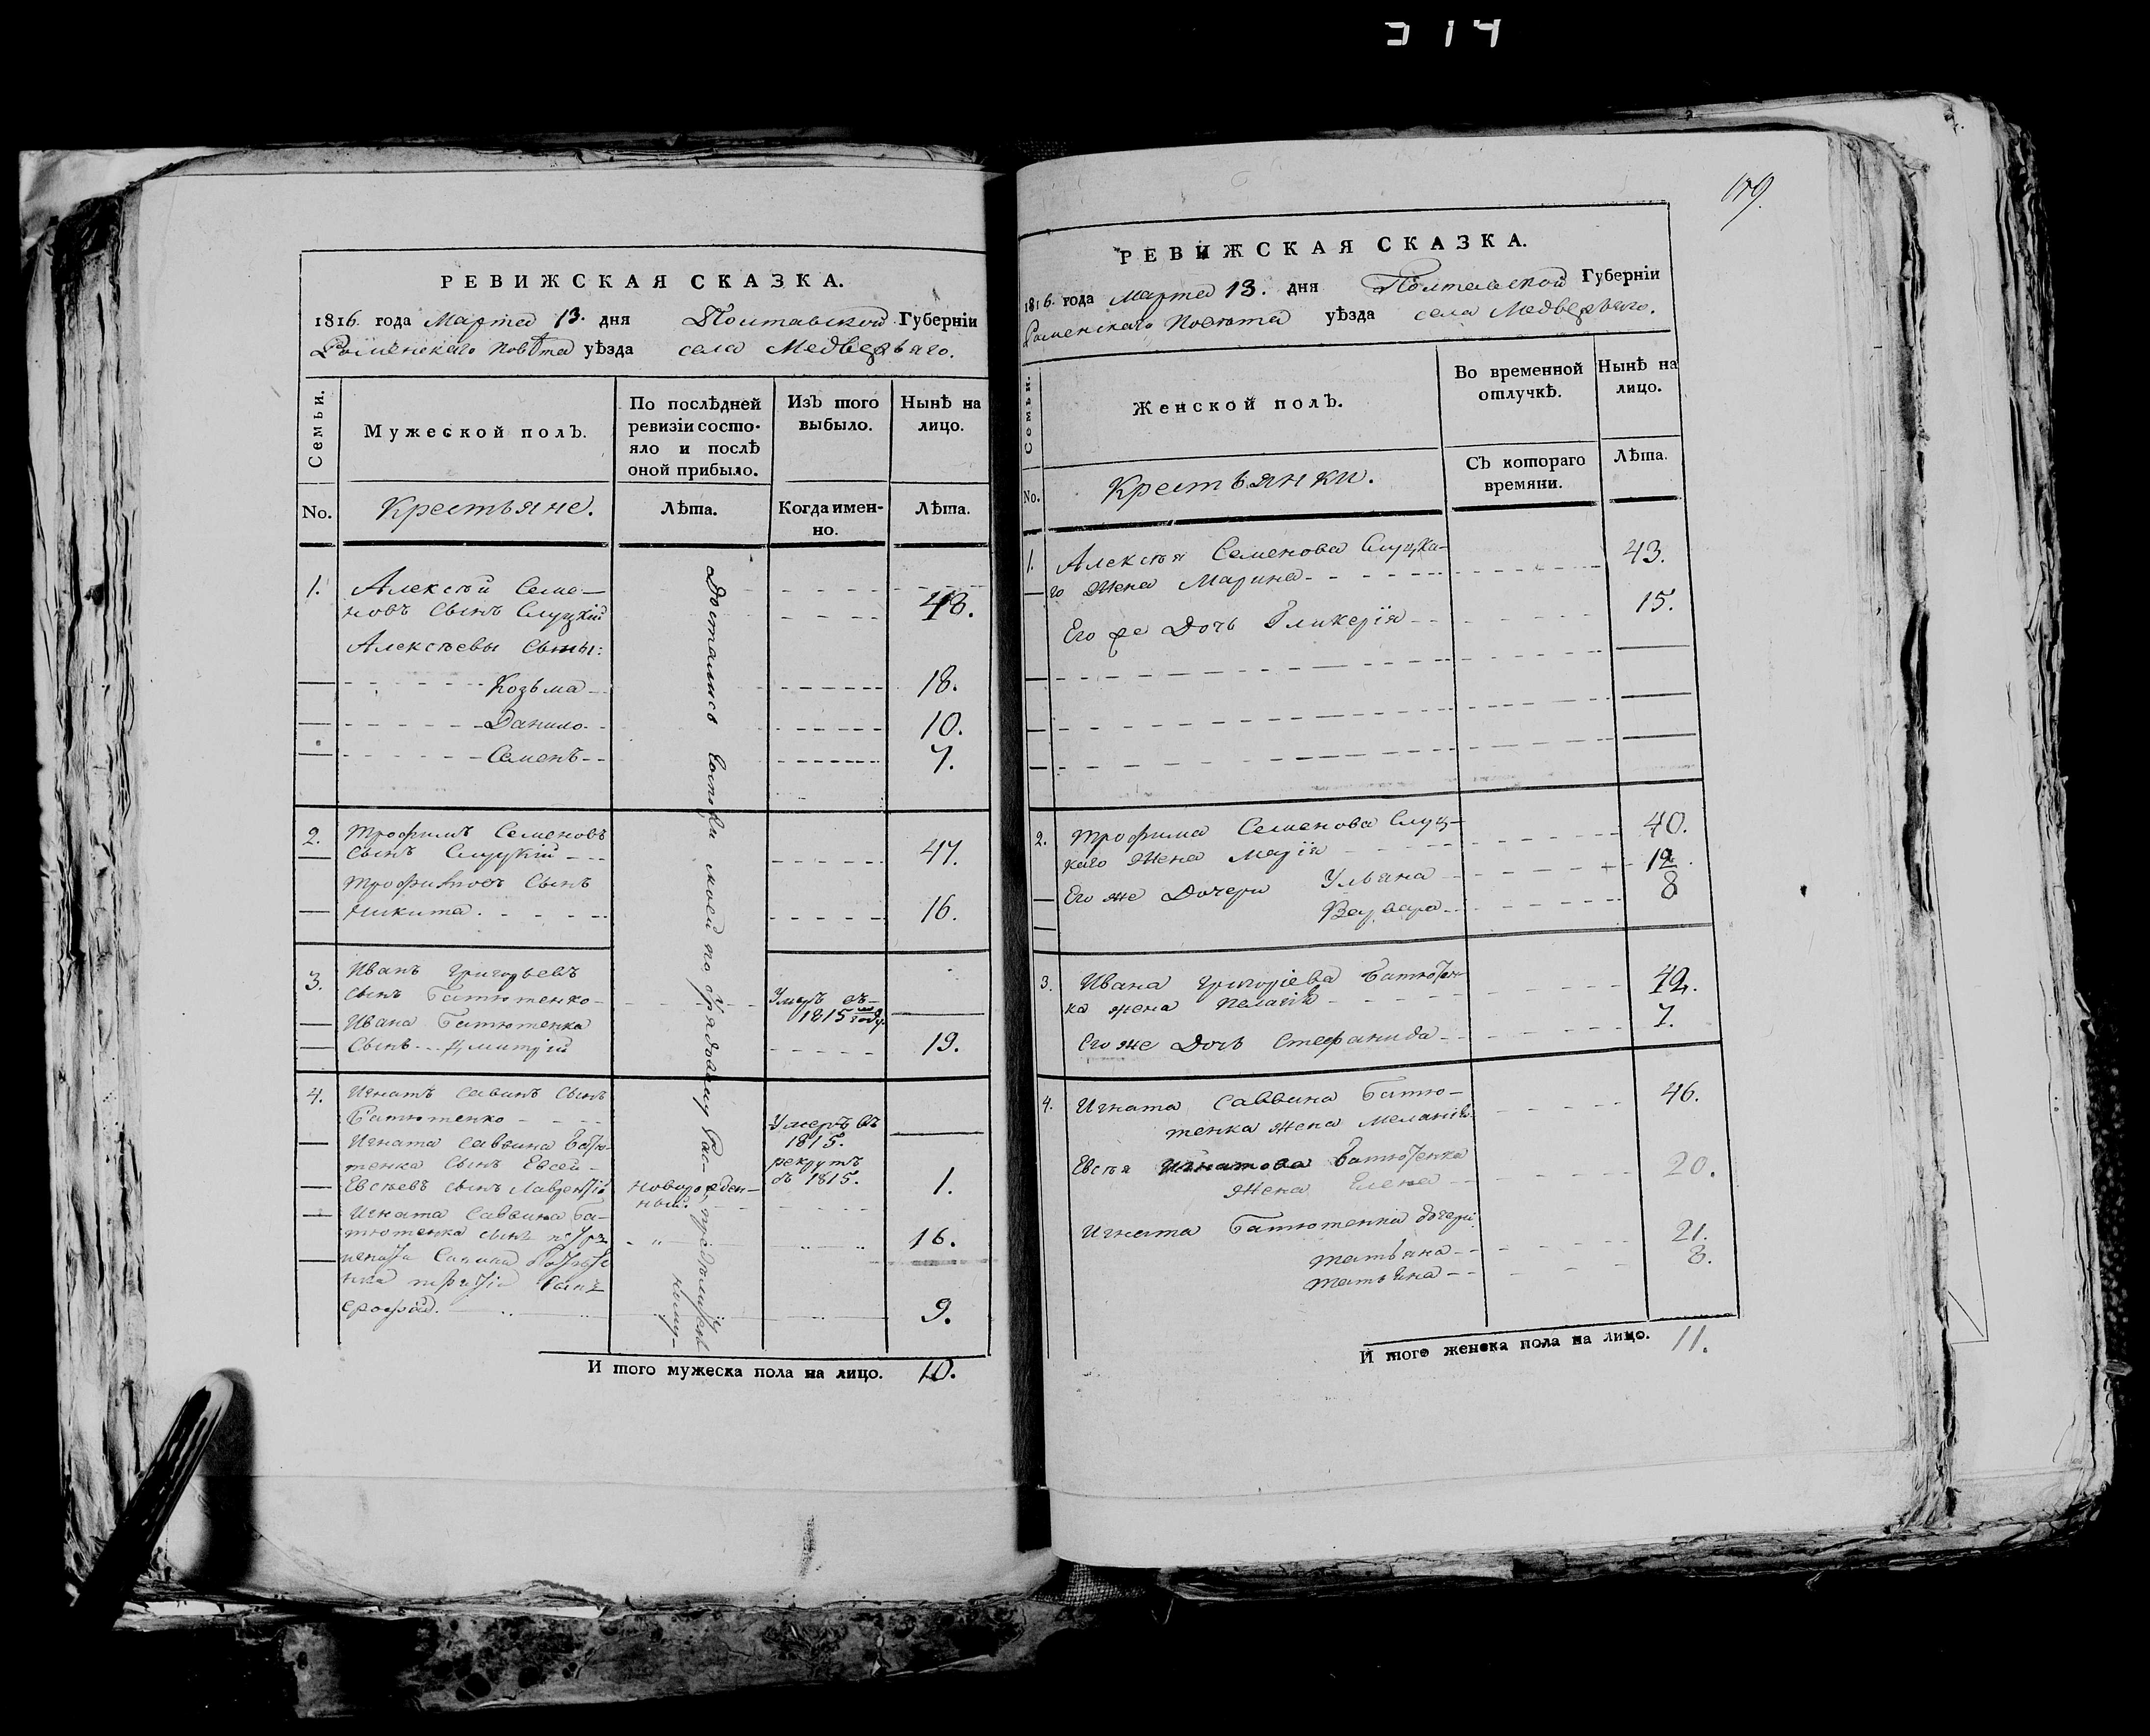 314
РЕВИЖСКАЯ СКАЗКА.
1816. года Марта 13. дня Полтавской Губерніи
Роменского повѣта уѣзда села Медвежяго.
Семьи.
Мужеской полъ.
По послѣдней
ревизіи состо-
яло и послѣ
оной прибыло.
Изъ того
выбыло.
Нынѣ на
лицо.
No.
Крестьяне.
Лѣта.
Когда имен-
но.
Лѣта.
Достались Госпожи моей по
1. Алексѣй Семе-
новъ сынъ Слуцкій 43.
Алексѣевы сыны:
Козьма 18.
Данило 10.
Семенъ 7.
2. Трофимъ Семеновъ
сынъ Слуцкій 47.
Трофимовъ сынъ
Никита. 16.
3. Иванъ Григорьевъ
сынъ Батютенко Умеръ въ
1815 году
Ивана Батютенка
сынъ Дмитрій 19.
4. Игнатъ Савинъ сынъ
Батютенко Умеръ въ
1815.
Игната Саввина Батю-
тенка сынъ Евсей рекрутъ
въ 1815.
Евсѣевъ сынъ новорожден-
ный. 1.
Игната Саввина Ба-
тютенка сынъ 16.
сынъ
9.
И того мужеска пола на лицо. 10.
179.
РЕВИЖСКАЯ СКАЗКА.
1816. года Марта 13. дня Полтавской Губерніи
Роменского Повѣта уѣзда села Медвежяго.
Семьи.
Женской полъ.
Во временной
отлучкѣ.
Нынѣ на
лицо.
No.
Крестьянки.
Съ котораго
времяни.
Лѣта.
1. Алексѣя Семенова Слуцка-
го жена Марина 43.
Его же дочь Гликерія 15.
2. Трофима Семенова Слуц-
каго жена Марія 40.
Его же дочери Ульяна 12.
Варвара 8
3. Ивана Григоріева Батютен-
ка жена Пелагія 42.
Его же дочь Стефанида 7.
4. Игната Саввина Батю-
тенка жена Меланія 46.
Евсѣя Игнатова Батютенка
жена Елена 20.
Игната Батютенка дочери
Татьяна 21.
Татьяна 8.
И того женска пола на лицо. 11.